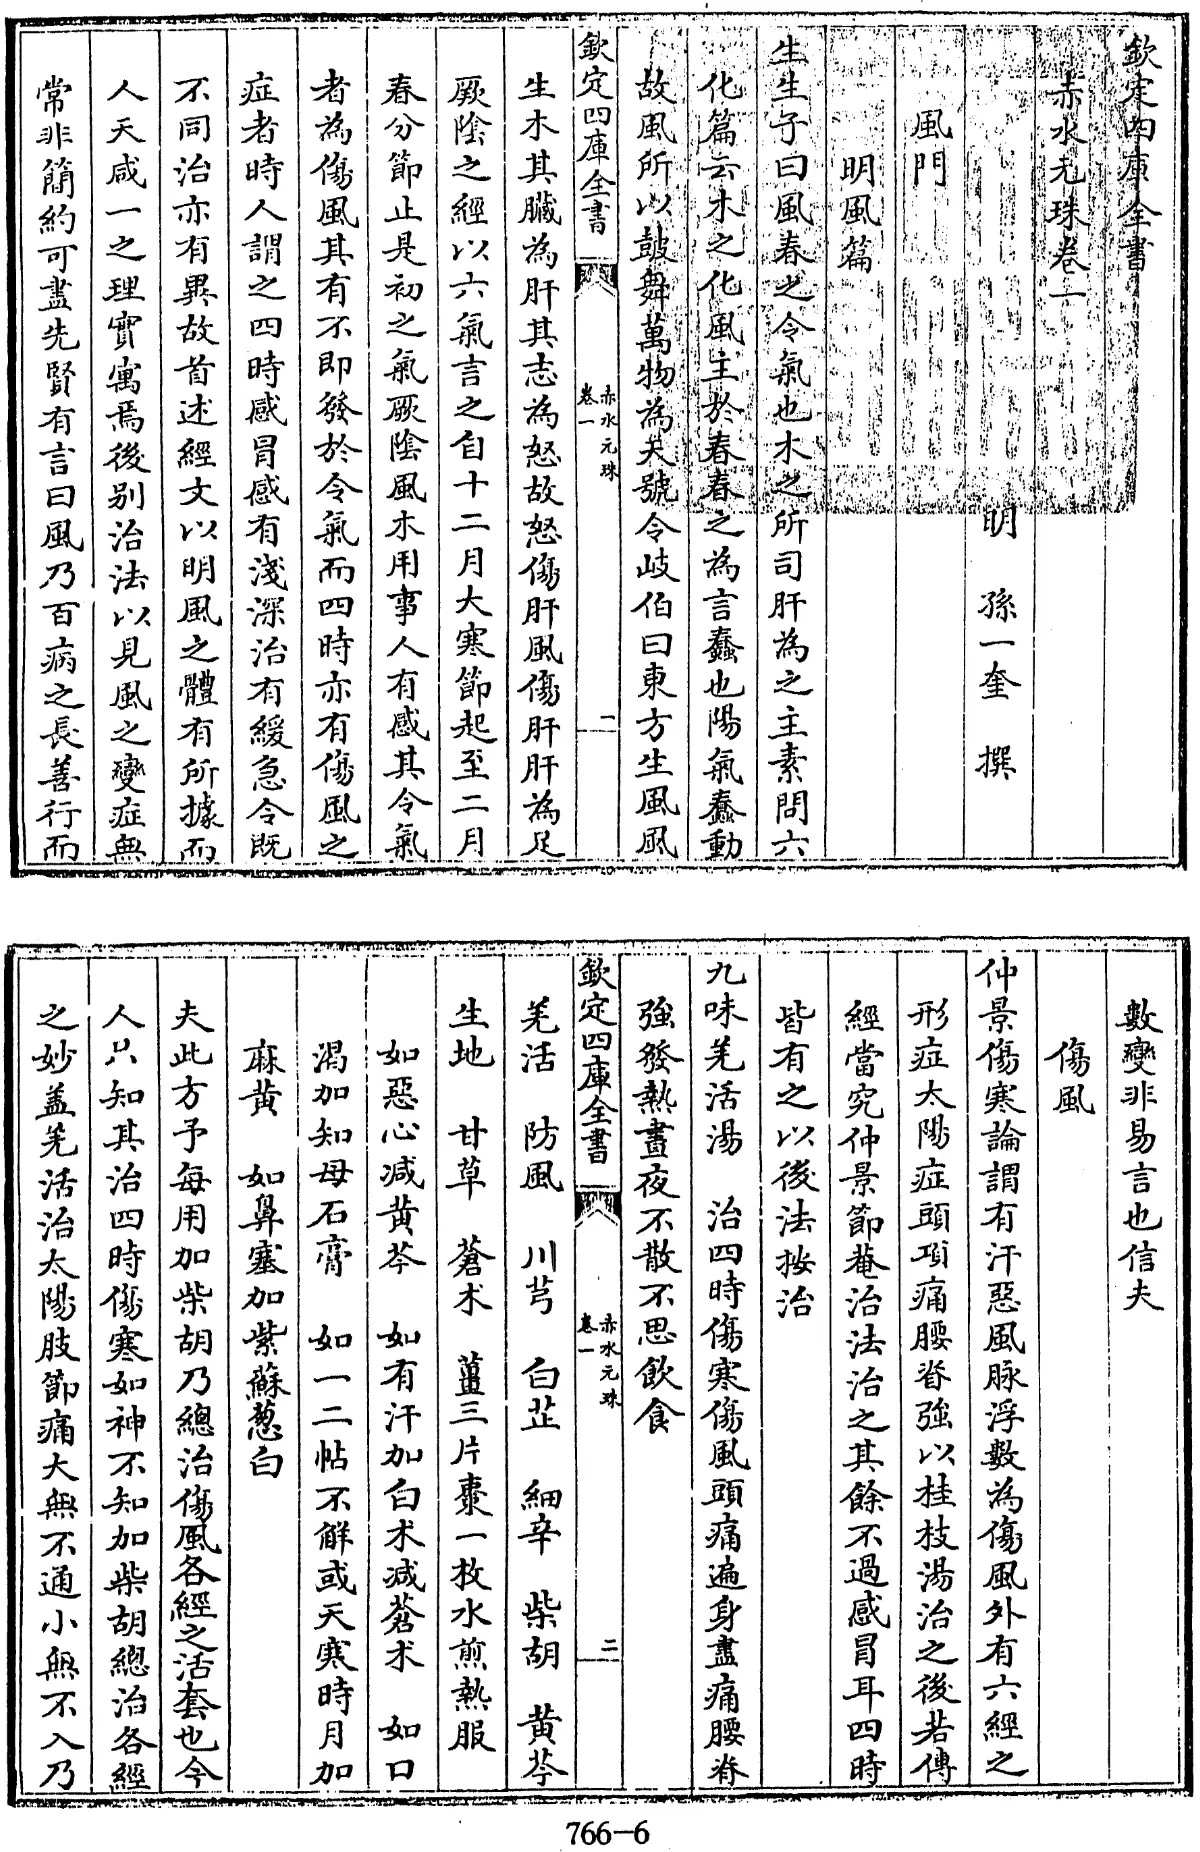 欽定四庫全書
赤水元珠卷一
明 孫一奎 撰
風門
明風篇
生生子曰風春之令氣也木之所司肝為之主素問六
化篇云木之化風主於春春之為言蠢也陽氣蠢動
故風所以鼓舞萬物為天號令岐伯曰東方生風風
欽定四庫全書
赤水元珠
卷一
一
生木其臟為肝其志為怒故怒傷肝風傷肝肝為足
厥陰之經以六氣言之自十二月大寒節起至二月
春分節止是初之氣厥陰風木用事人有感其令氣
者為傷風其有不即發於令氣而四時亦有傷風之
症者時人謂之四時感冒感有淺深治有緩急令既
不同治亦有異故首述經文以明風之體有所據而
人天咸一之理實寓焉後别治法以見風之變症無
常非簡約可盡先賢有言曰風乃百病之長善行而
數變非易言也信夫
傷風
仲景傷寒論謂有汗惡風脉浮數為傷風外有六經之
形症太陽症頭項痛腰脊強以桂枝湯治之後若傳
經當究仲景節菴治法治之其餘不過感冒耳四時
皆有之以後法按治
九味羌活湯 治四時傷寒傷風頭痛遍身盡痛腰脊
強發熱晝夜不散不思飲食
欽定四庫全書
赤水元珠
卷一
二
羌活 防風 川芎 白芷 細辛 柴胡 黄芩
生地 甘草 蒼术 薑三片棗一枚水煎熱服
如惡心減黄芩 如有汗加白术減蒼术 如口
渴加知母石膏 如一二帖不解或天寒時月加
麻黄 如鼻塞加紫蘇葱白
夫此方予每用加柴胡乃總治傷風各經之活套也今
人只知其治四時傷寒如神不知加柴胡總治各經
之妙盖羌活治太陽肢節痛大無不通小無不入乃
766-6